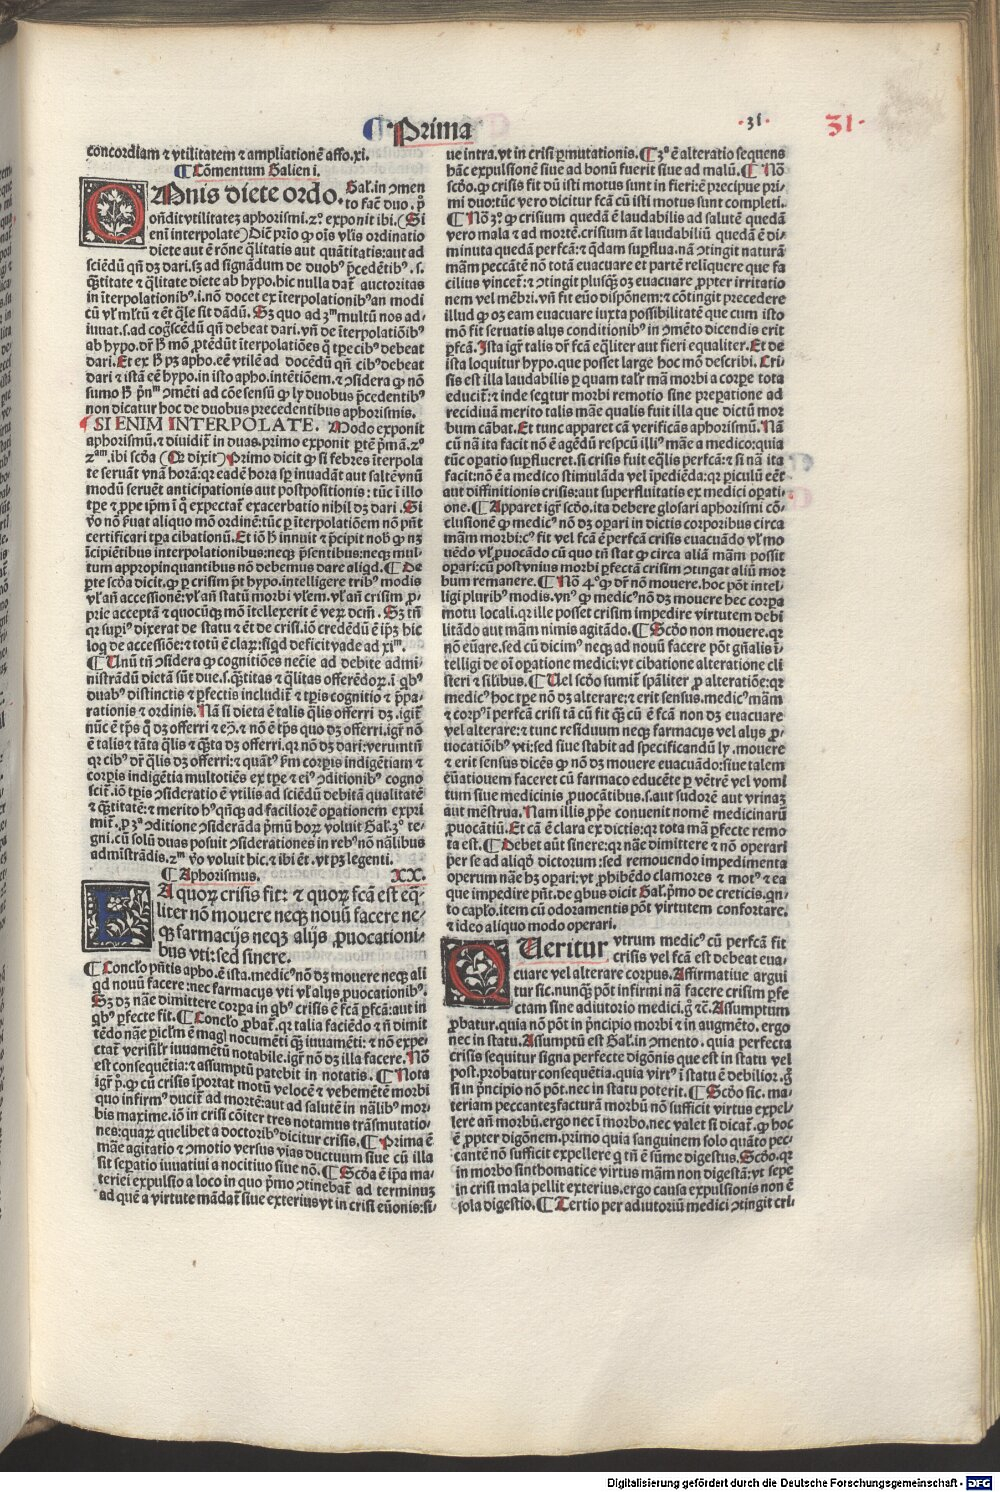 Prima
·31·
31·
concordiam ⁊ vtilitatem ⁊ ampliationē affo.xi.
¶ Cōmentum Galieni.
OMnis diete ordo. Gal.in ɔmen
to facit duo.
ondit vtilitatez aphorismi.2º.exponit ibi.(Si
eni interpolate)
diete aut ē rōne qlitatis aut quātitatis:aut ad
sciēdū qn dʒ dari.sʒ ad signādum de duobꝰ p̄cedētibꝰ.s.
q̄titate ⁊ qlitate diete ab hypo.hic nulla dat̄ auctoritas
in īterpolationibꝰ.i.nō docet ex īterpolationibꝰ an modi
cū vl̓ ml̓tū ⁊ ēt q̄le sit dādū. Sʒ quo ad 3ᵐ multū nos ad
iuuat.s.ad cogscēdū qn̄ debeat dari.vn̄ de īterpolatiōibꝰ
dari. Et ex pʒ apho.eē vtilē ad docēdū qn̄ cibꝰ debeat
dari ⁊ istā eē hypo.in isto apho.intētiōem.⁊ ɔsidera ꝙ nō
non dicatur hoc de duobus precedentibus aphorismis.
¶ SI ENIM INTERPOLATE. Modo exponit
aphorismū.⁊ diuidit̄ in duas.primo exponit ꝑtē pʳmā.2º
2ᵃᵐ.ibi scōa (Qr dixit) Primo dicit ꝙ si febres īterpola
te seruāt vnā horā:qr eadē hora sꝑ inuadāt aut saltē vnū
modū seruēt anticipationis aut postpositionis:tūc ī illo
tꝑe ⁊ ꝓpe ip̄m ī q̄ expectat̄ exacerbatio nihil dʒ dari. Si
certificari tꝑa cibationū. Et iō innuit ⁊ p̄cipit nob ꝙ nʒ
īcipiētibus interpolationibus:neqʒ p̄sentibus:neqʒ mul
tum appropinquantibus nō debemus dare aliqd.¶ De
ꝑte scōa dicit.ꝙ ꝑ crisim pn̄t hypo.intelligere tribꝰ modis
vl̓ an̄ accessionē:vl̓ an̄ statū morbi vl̓em.vl̓ an̄ crisim ꝓ
prie acceptā ⁊ quocūqʒ mō ītellexerit ē veʀ dcm̄. Sʒ tn̄
qr supiꝰ dixerat de statu ⁊ ēt de crisi.iō credēdū ē ip̄ʒ hic
loq de accessiōe:⁊ totū ē claʀ:siqd deficit vade ad xiᵐ.
¶ Unū tn̄ ɔsidera ꝙ cognitiōes necīe ad debite admi
nistrādū dietā sūt due.s.q̄titas ⁊ qlitas offerēdoʀ.ī qbꝰ
duabꝰ distinctis ⁊ ꝑfectis includit̄ ⁊ tꝑis cognitio ⁊ p̄pa
rationis ⁊ ordinis. Nā si dieta ē talis q̄lis offerri dʒ.igit̄
ē talis ⁊ tāta q̄lis ⁊ q̄ta dʒ offerri.qr nō dʒ dari:veruntn̄
corpis indigētia multotiēs ex tꝑe ⁊ eiꝰ ɔditionibꝰ cogno
scit̄.iō tꝑis ɔsideratio ē vtilis ad sciēdū debitā qualitatē
mit̄.ꝓ 3ᵃ ɔditione ɔsiderāda pʳmū hoʀ voluit Gal.3º te
gni.cū solū duas posuit ɔsiderationes in rebꝰ nō nālibus
admīstrādis.2ᵐ v̄o voluit hic.⁊ ibi ēt.vt pʒ legenti.
¶ Aphorismus. XX.
EA quoʀ crisis fit: ⁊ quoʀ fcā est eq̄
liter nō mouere neqʒ nouū facere ne
qʒ farmacijs neqʒ alijs ꝓuocationi
bus vti:sed sinere.
¶ Concl̓o pn̄tis apho.ē ista.medicꝰ nō dʒ mouere neqʒ ali
qd nouū facere:nec farmacijs vti vl̓ alijs ꝓuocationibꝰ.
Sʒ dʒ nāe dimittere corpa in qbꝰ crisis ē fcā ꝑfcā:aut in
qbꝰ ꝑfecte fit.¶ Concl̓o ꝓbat̄.qr talia faciēdo ⁊ n̄ dimit
tēdo nāe ꝑicl̓m ē magl̓ nocumēti q̄ʒ iuuamēti:⁊ nō expe
ctat̄ verisil̓r iuuamētū notabile.igr̄ nō dʒ illa facere. Nō
est consequētia:⁊ assumptū patebit in notatis.¶ Nota
igr̄ pʳ.ꝙ cū crisis īportat motū velocē ⁊ vehemētē morbi
quo infirmꝰ ducit̄ ad mortē:aut ad salutē in nālibꝰ mor
bis maxime.iō in crisi cōiter tres notamus trāsmutatio
nes:quaʀ quelibet a doctoribꝰ dicitur crisis.¶ Prima ē
māe agitatio ⁊ ɔmotio versus vias ductuum siue cū illa
sit seꝑatio iuuatiui a nocitiuo siue nō.¶ Scōa ē ip̄a ma
teriei expulsio a loco in quo pʳmo ɔtinebat̄ ad terminuʒ
ad quē a virtute mādat̄ siue exterius vt in crisi euōnis:si
ue intra.vt in crisi ꝑmutationis.¶ 3ᵃ ē alteratio sequens
hāc expulsionē siue ad bonū fuerit siue ad malū.¶ Nō
scōo.ꝙ crisis fit dū isti motus sunt in fieri:⁊ precipue pri
mi duo:tūc vero dicitur fcā cū isti motus sunt completi.
¶ Nō 3º.ꝙ crisium quedā ē laudabilis ad salutē quedā
vero mala ⁊ ad mortē.crisium āt laudabiliū quedā ē di
minuta quedā perfcā:⁊ q̄dam suꝑflua.nā ɔtingit naturā
mām peccātē nō totā euacuare et partē relīquere que fa
cilius vincet̄:⁊ ɔtingit plusqʒ oʒ euacuare ꝓpter irritatio
nem vel mēbri.vn̄ fit euo disponem:⁊ cōtingit precedere
illud ꝙ oʒ eam euacuare iuxta possibilitatē que cum isto
mō fit seruatis alijs conditionibꝰ in ɔmēto dicendis erit
ꝑfcā. Ista igr̄ talis dr̄ fcā eq̄liter aut fieri equaliter. Et de
ista loquitur hypo.que posset large hoc mō describi. Cri
sis est illa laudabilis ꝑ quam tal̓r mā morbi a corꝑe tota
educit̄:⁊ inde seqtur morbi remotio sine preꝑatione ad
recidiuā merito talis māe qualis fuit illa que dictū mor
bum cābat. Et tunc apparet cā verificās aphorismū. Nā
cū nā ita facit nō ē agēdū respcū illiꝰ māe a medico:quia
tūc oꝑatio suꝑflueret.si crisis fuit eq̄lis ꝑfcā:⁊ si nā ita
facit:nō ē a medico stimulāda vel īpediēda:qr ꝑiculū eēt
aut diffinitionis crisis:aut superfluitatis ex medici oꝑati
one.¶ Apparet igr̄ scōo.ita debere glosari aphorismi cō
clusionē ꝙ medicꝰ nō dʒ oꝑari in dictis corporibus circa
mām morbi:cꝰ fit vel fcā ē perfcā crisis euacuādo vl̓ mo
uēdo vl̓ ꝓuocādo cū quo tn̄ stat ꝙ circa aliā mām possit
oꝑari:cū post vnius morbi ꝑfectā crisim ɔtingat aliū mor
bum remanere.¶ Nō 4º.ꝙ dr̄ nō mouere.hoc pōt intel
ligi pluribꝰ modis.vnꝰ ꝙ medicꝰ nō dʒ mouere hec corpa
motu locali.qr ille posset crisim impedire virtutem debi
litādo aut mām nimis agitādo.¶ Scōo non mouere.qr
nō euare.sed cū dicimꝰ neqʒ ad nouū facere pōt gn̄alis ī
telligi de oī oꝑatione medici:vt cibatione alteratione cli
steri ⁊ silibus.¶ Uel scōo sumit̄ spāliter ꝓ alteratiōe:qr
medicꝰ hoc tꝑe nō dʒ alterare:⁊ erit sensus.medicꝰ mām
⁊ corpꝰ ī perfcā crisi tā cū fit q̄ʒ cū ē fcā non dʒ euacuare
vel alterare:⁊ tunc residuum neqʒ farmacijs vel alijs ꝓ
uocatiōibꝰ vti:sed siue stabit ad specificandū ly.mouere
⁊ erit sensus dicēs ꝙ nō dʒ mouere euacuādo:siue talem
euatiouem faceret cū farmaco educēte ꝑ vētrē vel vomi
tum siue medicinis ꝓuocātibus.s.aut sudorē aut vrinaʒ
aut mēstrua. Nam illis ꝓpe conuenit nomē medicinarū
ꝓuocātiū. Et cā ē clara ex dictis:qr tota mā ꝑfecte remo
ta est.¶ Debet aūt sinere:qr nāe dimittere ⁊ nō operari
per se ad aliqō dictorum:sed remouendo impedimenta
operum nāe hʒ oꝑari:vt ꝓhibēdo clamores ⁊ motꝰ ⁊ ea
que impedire pn̄t.de qbus dicit Gal.pʳmo de creticis.qn
to capl̓o.item cū odoramentis pōt virtutem confortare.
⁊ ideo aliquo modo operari.
QUeritur vtrum medicꝰ cū perfcā fit
crisis vel fcā est debeat eua
cuare vel alterare corpus. Affirmatiue argui
tur sic.nunqʒ pōt infirmi nā facere crisim ꝑfe
ctam sine adiutorio medici.g̊ ⁊c̄. Assumptum
ꝓbatur.quia nō pōt in pʳncipio morbi ⁊ in augmēto.ergo
nec in statu. Assumptū est Gal.in ɔmento.quia perfecta
crisis sequitur signa perfecte digōnis que est in statu vel
post.probatur consequētia.quia virtꝰ ī statu ē debilior.g̊
si in pʳncipio nō pōt.nec in statu poterit.¶ Scōo sic.ma
teriam peccanteʒ facturā morbū nō sufficit virtus expel
lere an̄ morbū.ergo nec ī morbo.nec valet si dicat̄.ꝙ hoc
ē ꝓpter digōnem.primo quia sanguinem solo quāto pec
cantē nō sufficit expellere q tn̄ ē sūme digestus. Scōo.qr
in morbo sinthomatice virtus mām non digestā:vt sepe
in crisi mala pellit exterius.ergo causa expulsionis non ē
sola digestio.¶ Tertio per adiutoriū medici ɔtingit cri
Digitalisierung gefördert durch die Deutsche Forschungsgemeinschaft - DFG